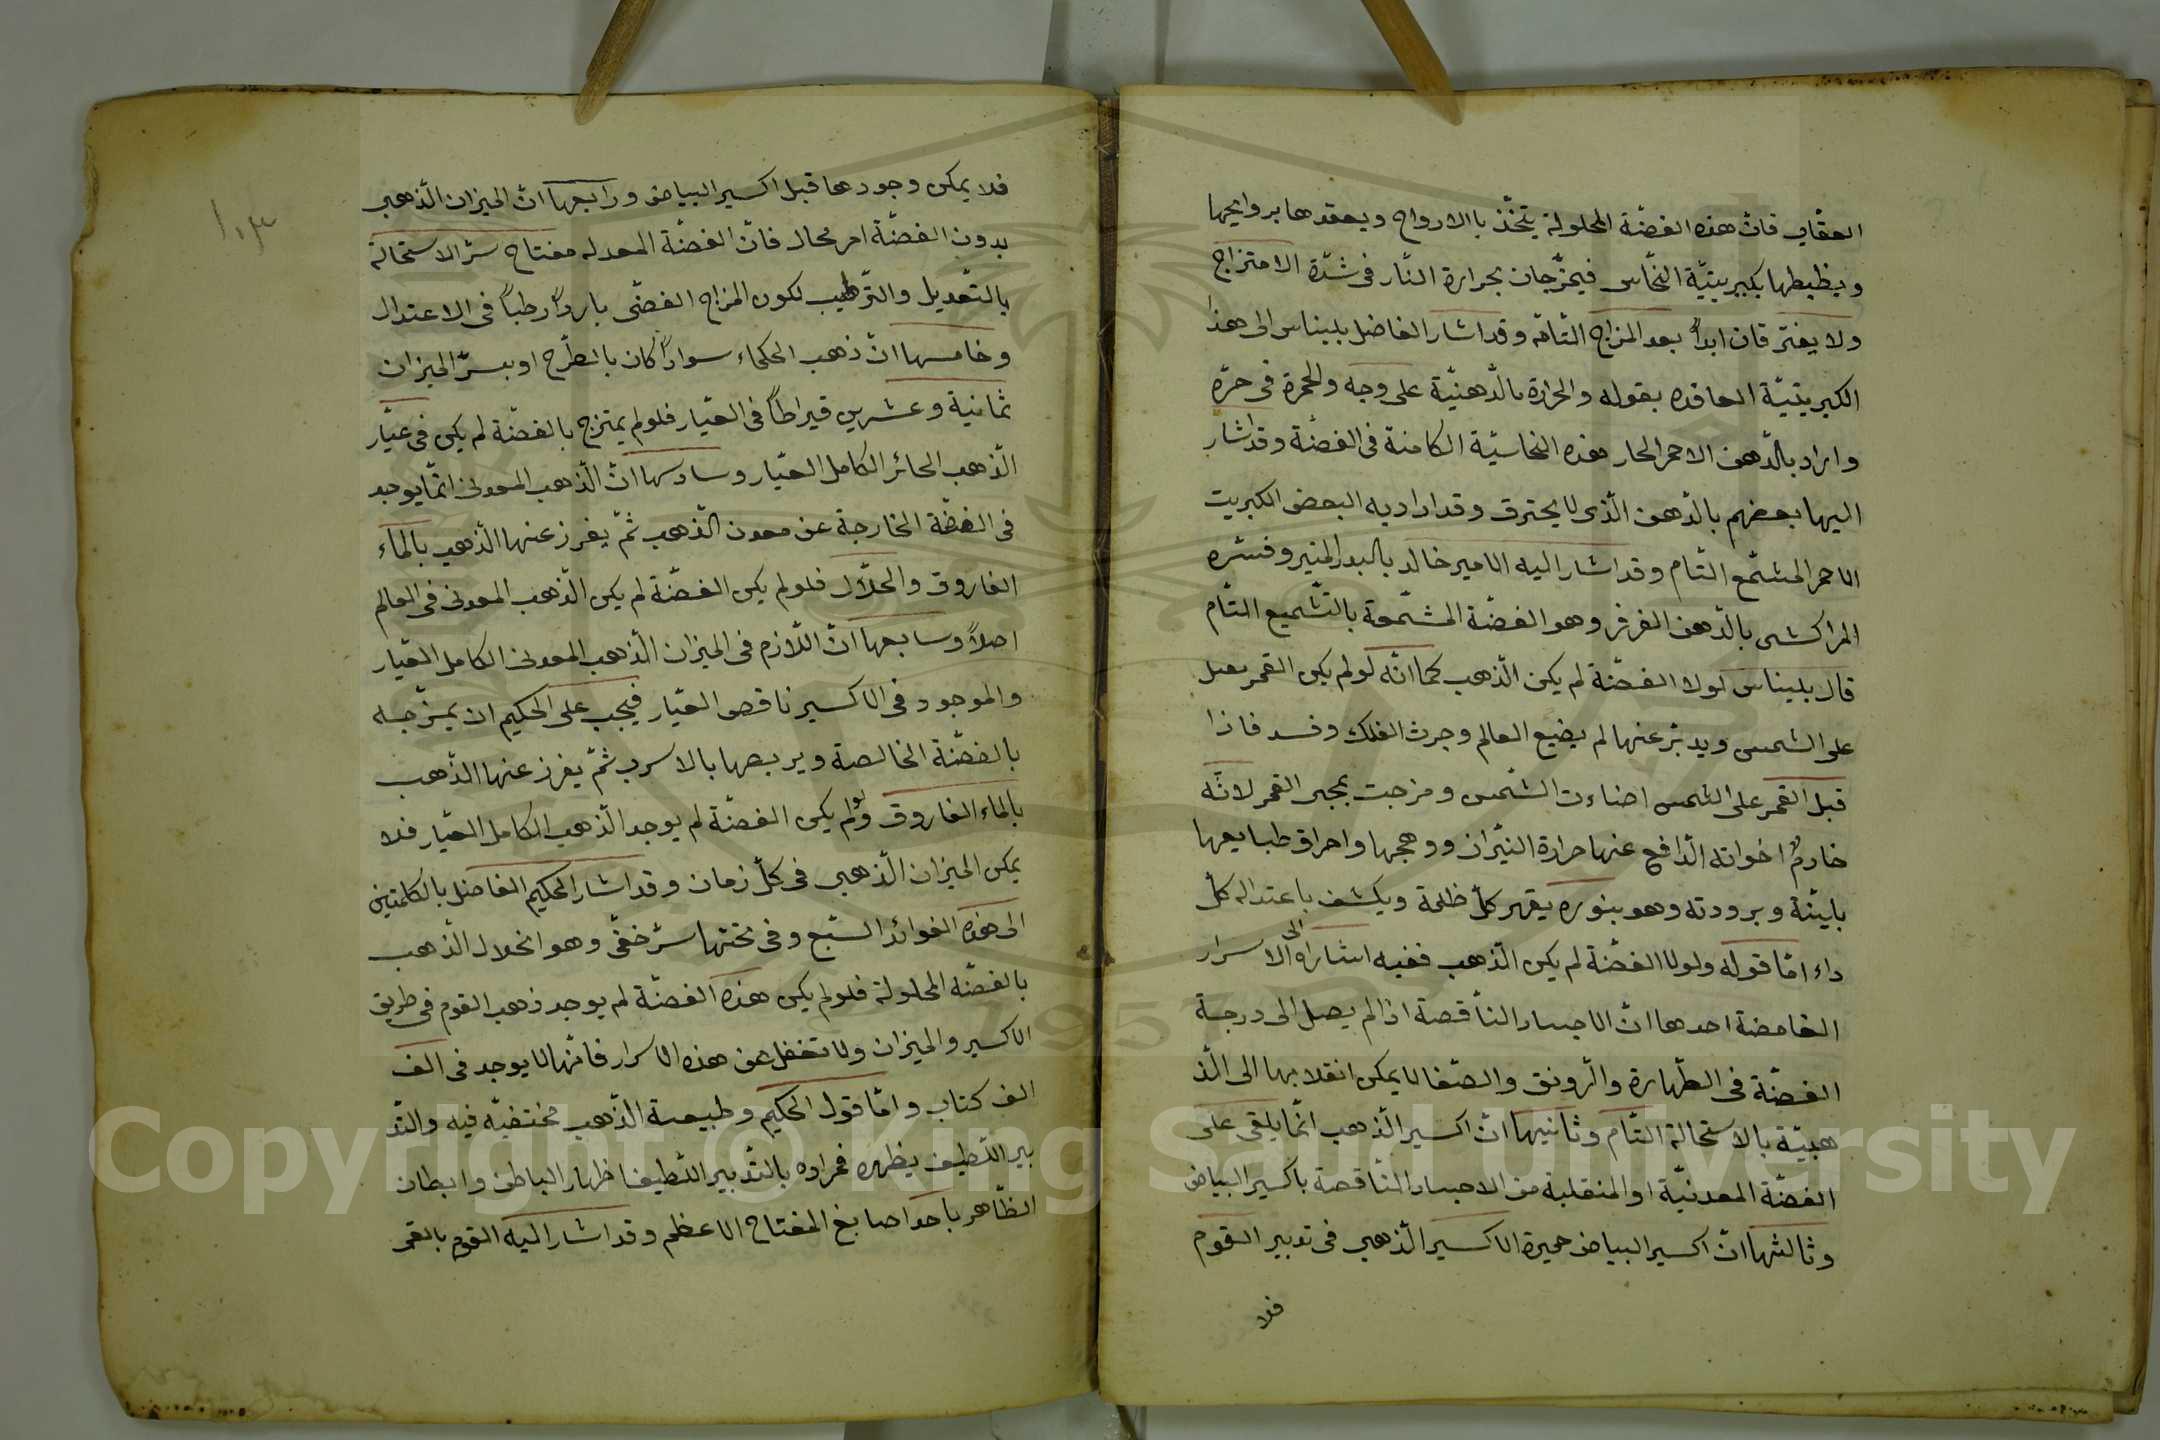 العقاب فانّ هذه الفضّة المحلولة يتّخذ بالارواح ويعقدها بروايحها
ويظبطها بكبريتيّة النحّاس فيمزّجان بحرارة النّار فى شدّة الامتزاج
ولا يفترقان ابداً بعد المزاج التّامّه وقد اشار الفاضل بليناس الى هذا
الكبريتيّة العاقده بقوله والحرارة بالدّهنيّة على وجه والحمرة فى حرّه
واراد بالدّهن الاحمر الحار هذه النحاسيّة الكامنة فى الفضّة وقد اشار
اليها بعضهم بالدّهن الّذى لا يحترق وقد اراد به البعض الكبريت
الاحمر المشمّع التّام وقد اشار اليه الامير خالد بالبدر المنير وفسّره
المراكشى بالدّهن الفرفر وهو الفضّة المشمّعة بالتّشميع التّام
قال بليناس لولا الفضّة لم يكن الذّهب كما انّه لو لم يكن القمر
على الشمس ويدبّر عنها لم يضيع العالم وجرت الفلك وفسد فاذا
قبل القمر على الشمس اضاءت الشّمس ومزجت بمجى القمر لانّه
خادمٌ اخواته الدّافع عنها حرارة النيّران ووهجها واحراق طبايعها
بلينّة وبرودته وهو بنوره يقهر كلّ ظلمة ويكشف باعتداله كلّ
داء امّا قوله ولولا الفضّة لم يكن الذّهب ففيه اشاراة الى الاسرار
الغامضة احدها انّ الاجساد النّاقصة اذا لم يصل الى درجة
الفضّة فى الطّهارة والرّونق والصّفا لا يمكن انقلابها الى الذّ
هبيّة بالاستحالة التّام وثانيها انّ اكسير الذّهب انّما يلقى على
الفضّة المعدنيّة او المنقلبة من الاجساد النّاقصة باكسير البياض
وثالثها انّ اكسير البياض خميرة الاكسير الذّهبى فى تدبير القوم
فلا
فلا يمكن وجودها قبل اكسير البياض ورابعها انّ الميزان الذّهبى
بدون الفضّة امر محال فانّ الفضّة المعدله مفتاح سرّ الاستحالة
بالتّعديل والتّرطيب لكون المزاج الفضّى بارداً رطباً فى الاعتدال
وخامسها انّ ذهب الحكماء سواداً كان بالطّرح او بسرّ الميزان
ثمانية وعشرين قيراطاً فى العيّار فلو لم يمتزج بالفضّة لم يكن فى عيّار
الذّهب الحائز الكامل العيّار وسادسها انّ الذّهب المعدنى انّما يوجد
فى الفضّة الخارجة عن معدن الذّهب ثمّ يفرز عنها الذّهب بالماء
الفاروق والحلّال فلو لم يكن الفضّة لم يكن الذّهب المعدنى فى العالم
اصلاً وسابعها انّ اللّازم فى الميزان الذّهب المعدنى الكامل العيّار
والموجود فى الاكسير ناقص العيّار فيجب على الحكيم ان يمزّجه
بالفضّة الخالصة ويربصها بالاسرب ثمّ يفرز عنها الذّهب
بالماء الفاروق ولو لم يكن الفضّة لم يوجد الذّهب الكامل العيّار فلا
يمكن الميزان الذّهبى فى كلّ زمان وقد اشار الحكيم الفاضل بالكلمتين
الى هذه الفوائد السّبع وفى تحتها سرّ خفىّ وهو انحلال الذّهب
بالفضّه المحلولة فلو لم يكن هذه الفضّة لم يوجد ذهب القوم فى طريق
الاكسير والميزان ولا تغفل عن هذه الاسرار فانّها لا يوجد فى الف
الف كتاب وامّا قول الحكيم وطبيعة الذّهب مختفيّه فيه والتّد
بير اللّطيف يظهره فمراده بالتّدبير اللّطيف اظهار الباطن وابطان
الظّاهر باحد اصابع المفتاح الاعظم وقد اشار اليه القوم بالقمر